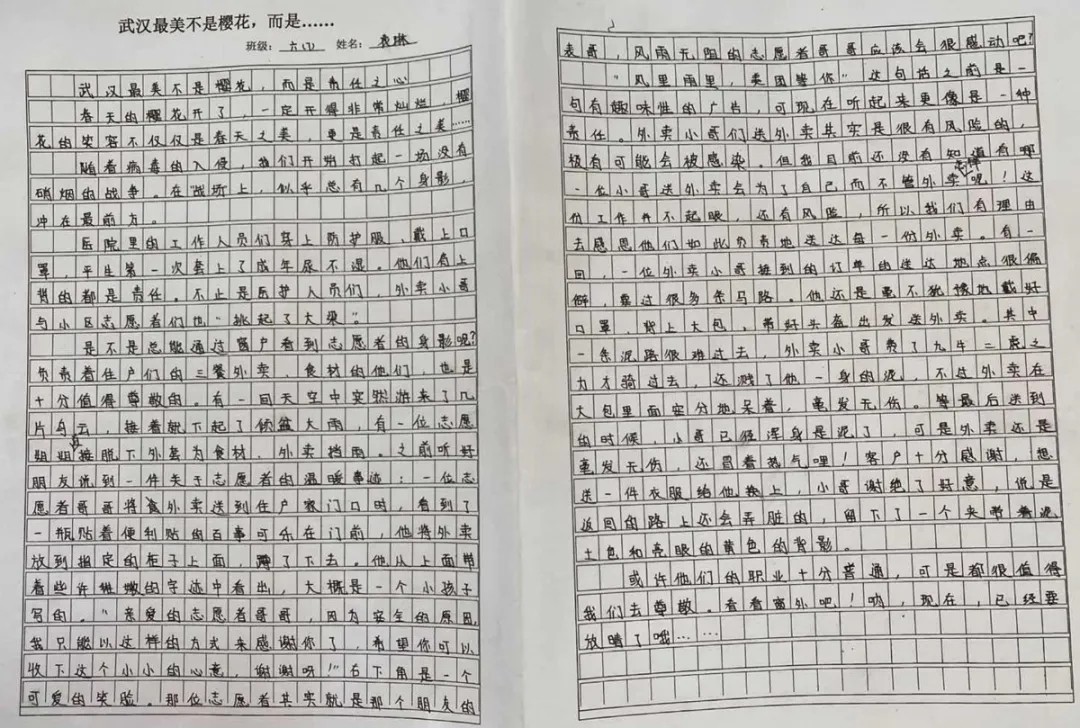 武汉最美不是樱花，而是……
班级：六(1) 姓名：袁琳
武汉最美不是樱花，而是责任之心
春天的樱花开了，一定开得非常灿烂，樱
花的笑容不仅仅是春天之美，更是责任之美……
随着病毒的入侵，我们开始打起一场没有
硝烟的战争。在"战场上，似乎总有几个身影，
冲在最前方。
医院里的工作人员们穿上防护服、戴上口
罩，平生第一次套上了成年尿不湿。他们肩上
背的都是责任。不止是医护人员们，外卖小哥
与小区志愿者们也"挑起了大梁"。
是不是总能通过窗户看到志愿者的身影呢？
负责着住户们的三餐外卖，食材的他们，也是
十分值得尊敬的。有一回天空中突然游来了几
片乌云，接着就下起了倾盆大雨，有一位志愿
姐姐直接脱下外套为食材、外卖挡雨。之前听好
朋友说到一件关于志愿者的温暖事迹：一位志
愿者哥哥将外卖送到住户家门口时，看到了
一瓶贴着便利贴的百事可乐在门前，他将外卖
放到指定的柜子上面，蹲了下去。他从上面带
着些许稚嫩的字迹中看出，大概是一个小孩子
写的。"亲爱的志愿者哥哥，因为安全的原因，
我只能以这样的方式来感谢你了，希望你可以
收下这个小小的心意，谢谢呀！"右下角是一个
可爱的笑脸。那位志愿者其实就是那个朋友的
表哥，风雨无阻的志愿者哥哥应该会很感动吧？
"风里雨里，美团等你"这句话之前是一
句有趣味性的广告，可现在听起来更像是一种
责任。外卖小哥们送外卖其实是很有风险的，
极有可能会被感染。但我目前还没有知道有哪
一位小哥送外卖会为了自己而不管外卖呢！这
份工作并不起眼，还有风险，所以我们有理由
去感恩他们如此负责地送达每一份外卖。有一
回，一位外卖小哥接到的订单的送达地点很偏
僻，靠过很多条马路。他还是毫不犹豫地戴好
口罩，背上大包、带好头盔出发送外卖。其中
一条泥路很难过去，外卖小哥费了九牛二虎之
力才骑过去，还溅了他一身的泥，不过外卖在
大包里面安分地呆着，毫发无伤。等最后送到
的时候，小哥已经浑身是泥了，可是外卖还是
毫发无伤，还冒着热气哩！客户十分感谢，想
送一件衣服给他换上，小哥谢绝了好意，说是
返回的路上还会弄脏的，留下了一个夹带着泥
土色和亮眼的黄色的背影。
或许他们的职业十分普通，可是都很值得
我们去尊敬。看看窗外吧！哟，现在，已经要
放晴了哦……